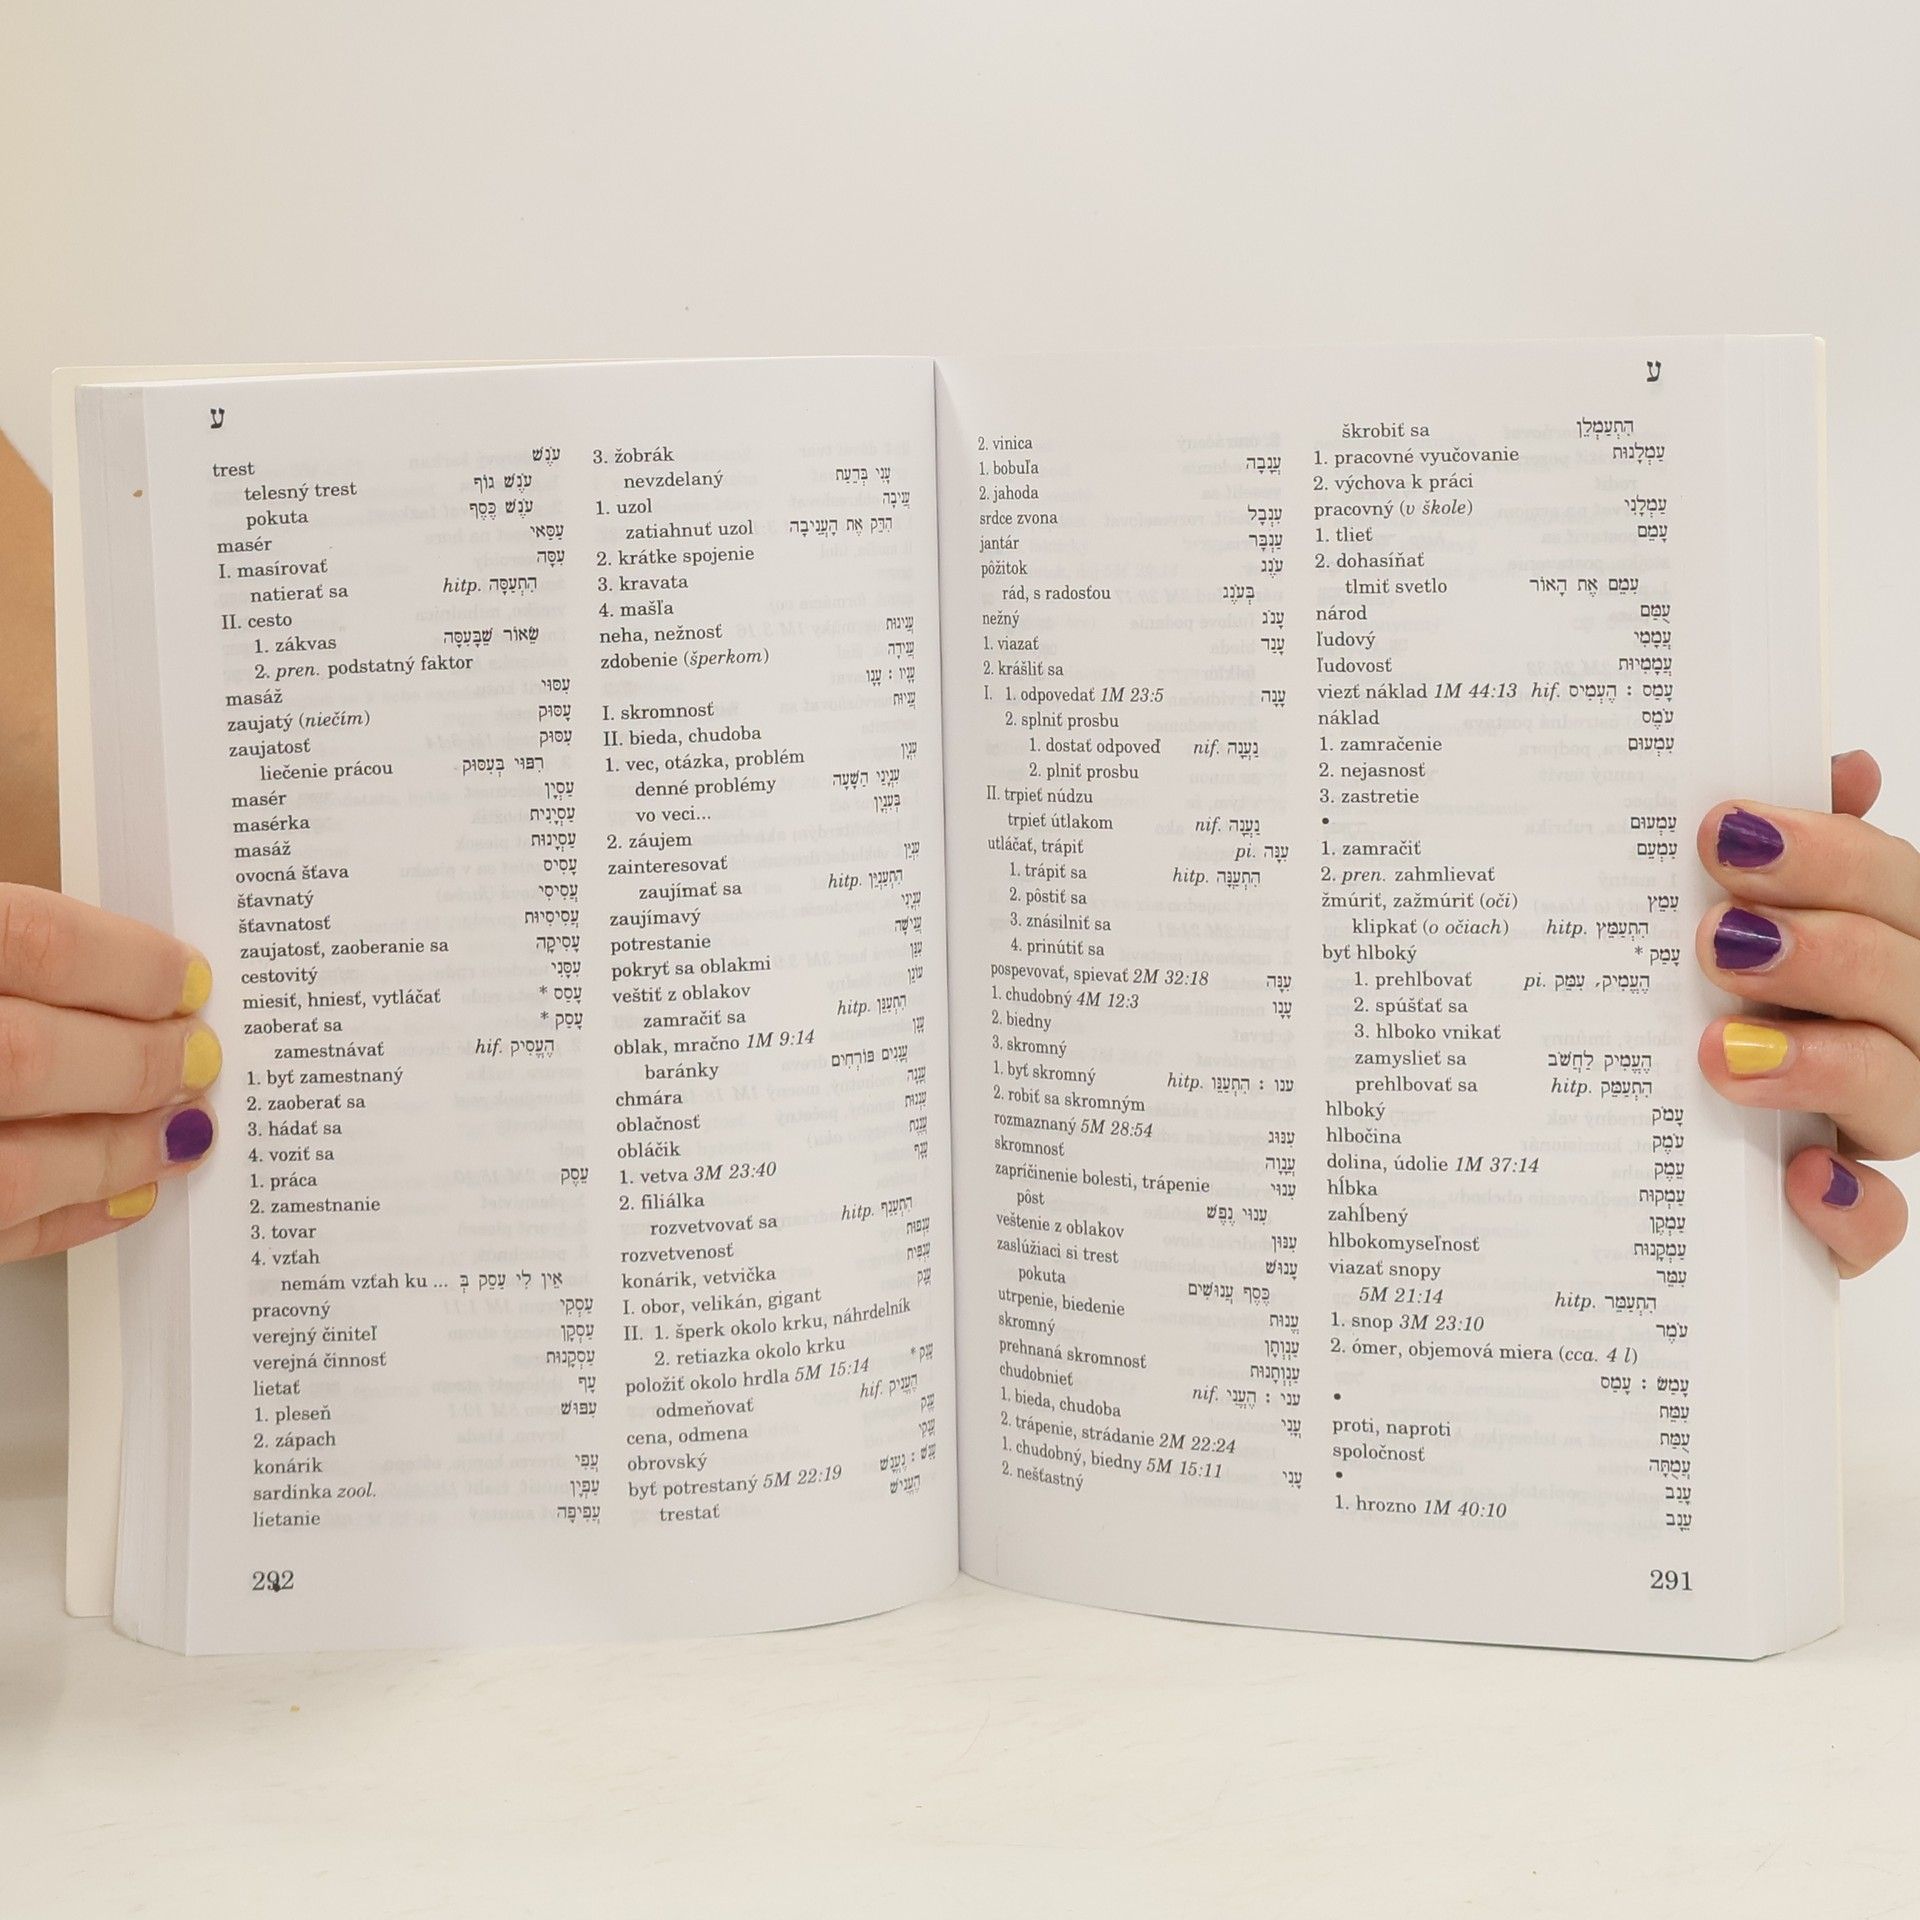 ע
škrobiť sa הִתְעַמְלֵן
1. pracovné vyučovanie עַמְלָנוּת
2. výchova k práci
pracovný (v škole) עַמְלָנִי
1. tlieť עָמַם
2. dohasíňať
tlmiť svetlo עִמֵּם אֶת הָאוֹר
národ עֲמָם
ľudový עֲמָמִי
ľudovosť עֲמָמִיּוּת
viezť náklad 1M 44:13 hif. עָמַס : הֶעְמִיס
náklad עֹמֶס
1. zamračenie עִמְעוּם
2. nejasnosť
3. zastretie
• עַמְעוּם
1. zamračiť עִמְעֵם
2. pren. zahmlievať
žmúriť, zažmúriť (oči) עִמֵּץ
klipkať (o očiach) hitp. הִתְעַמֵּץ
byť hlboký עָמַק *
1. prehlbovať pi. הֶעֱמִיק, עִמֵּק
2. spúšťať sa
3. hlboko vnikať
zamyslieť sa הֶעֱמִיק לַחֲשֹׁב
prehlbovať sa hitp. הִתְעַמֵּק
hlboký עָמֹק
hlbočina עֹמֶק
dolina, údolie 1M 37:14 עֵמֶק
hĺbka עַמְקוּת
zahĺbený עַמְקָן
hlbokomyseľnosť עַמְקָנוּת
viazať snopy עִמֵּר
5M 21:14 hitp. הִתְעַמֵּר
1. snop 3M 23:10 עֹמֶר
2. ómer, objemová miera (cca. 4 l)
עָמַשׂ : עָמַס
• עִמֵּת
proti, naproti עֻמַּת
spoločnosť עֲמֻתָּה
• עָנַב
1. hrozno 1M 40:10 עֵנָב
2. vinica
1. bobuľa עֲנָבָה
2. jahoda
srdce zvona עִנְבָּל
jantár עִנְבָּר
pôžitok עֹנֶג
rád, s radosťou בְּעֹנֶג
nežný עָנֹג
1. viazať עָנַד
2. krášliť sa
I. 1. odpovedať 1M 23:5 עָנָה
2. splniť prosbu
1. dostať odpoveď nif. נַעֲנָה
2. plniť prosbu
II. trpieť núdzu
trpieť útlakom nif. נַעֲנָה
utláčať, trápiť pi. עִנָּה
1. trápiť sa hitp. הִתְעַנָּה
2. pôstiť sa
3. znásilniť sa
4. prinútiť sa
pospevovať, spievať 2M 32:18 עִנָּה
1. chudobný 4M 12:3 עָנָו
2. biedny
3. skromný
1. byť skromný hitp. ענו : הִתְעַנֵּו
2. robiť sa skromným
rozmaznaný 5M 28:54 עִנּוּג
skromnosť עֲנָוָה
zapríčinenie bolesti, trápenie עִנּוּי
pôst עִנּוּי נֶפֶשׁ
veštenie z oblakov עִנּוּן
zaslúžiaci si trest עָנוּשׁ
pokuta כֶּסֶף עֲנוּשִׁים
utrpenie, biedenie עֱנוּת
skromný עַנְוְתָן
prehnaná skromnosť עַנְוְתָנוּת
chudobnieť nif. עני : הֶעֱנִי
1. bieda, chudoba עֳנִי
2. trápenie, strádanie 2M 22:24
1. chudobný, biedny 5M 15:11 עָנִי
2. nešťastný
291
ע
3. žobrák
nevzdelaný עָנִי בְּדַעַת
1. uzol עֲנִיבָה
zatiahnuť uzol הִדֵּק אֶת הָעֲנִיבָה
2. krátke spojenie
3. kravata
4. mašľa
neha, nežnosť עֲנִינוּת
zdobenie (šperkom) עֲנִידָה
עָנָיו : עָנָו
I. skromnosť עֲנִיּוּת
II. bieda, chudoba
1. vec, otázka, problém עִנְיָן
denné problémy עִנְיְנֵי הַשָּׁעָה
vo veci... בְּעִנְיַן
2. záujem
zainteresovať עִנְיֵן
zaujímať sa hitp. הִתְעַנְיֵן
zaujímavý עִנְיָנִי
potrestanie עֲנִישָׁה
pokryť sa oblakmi עִנֵּן
veštiť z oblakov עוֹנֵן
zamračiť sa hitp. הִתְעַנֵּן
oblak, mračno 1M 9:14 עָנָן
baránky עֲנָנִים פּוֹרְחִים
chmára עֲנָנָה
oblačnosť עַנְנוּת
obláčik עֲנֶנֶת
1. vetva 3M 23:40 עָנָף
2. filiálka
rozvetvovať sa hitp. הִתְעַנֵּף
rozvetvenosť עַנְפּוּת
konárik, vetvička עַנְפִּית
I. obor, velikán, gigant עֲנָק
II. 1. šperk okolo krku, náhrdelník
2. retiazka okolo krku
položiť okolo hrdla 5M 15:14 עָנַק *
odmeňovať hif. הֶעֱנִיק
cena, odmena עֵנֶק
obrovský עֲנָקִי
byť potrestaný 5M 22:19 עָנַשׁ : נֶעֱנַשׁ
trestať הֶעֱנִישׁ
trest עֹנֶשׁ
telesný trest עֹנֶשׁ גּוּף
pokuta עֹנֶשׁ כֶּסֶף
masér עַסַּאי
I. masírovať עִסָּה
natierať sa hitp. הִתְעַסָּה
II. cesto
1. zákvas שְׂאוֹר שֶׁבָּעִסָּה
2. pren. podstatný faktor
masáž עִסּוּי
zaujatý (niečím) עָסוּק
zaujatosť עִסּוּק
liečenie prácou רִפּוּי בְּעִסּוּק
masér עַסְיָן
masérka עַסְיָנִית
masáž עַסְיָנוּת
ovocná šťava עָסִיס
šťavnatý עֲסִיסִי
šťavnatosť עֲסִיסִיּוּת
zaujatosť, zaoberanie sa עֲסִיקָה
cestovitý עִסָּנִי
miesiť, hniesť, vytláčať עָסַס *
zaoberať sa עָסַק *
zamestnávať hif. הֶעֱסִיק
1. byť zamestnaný
2. zaoberať sa
3. hádať sa
4. voziť sa
1. práca עֵסֶק
2. zamestnanie
3. tovar
4. vzťah
nemám vzťah ku ... אֵין לִי עֵסֶק בְּ
pracovný עִסְקִי
verejný činiteľ עַסְקָן
verejná činnosť עַסְקָנוּת
lietať עָף
1. pleseň עִפּוּשׁ
2. zápach
konárik עֳפִי
sardinka zool. עַפְיָן
lietanie עֲפִיפָה
292